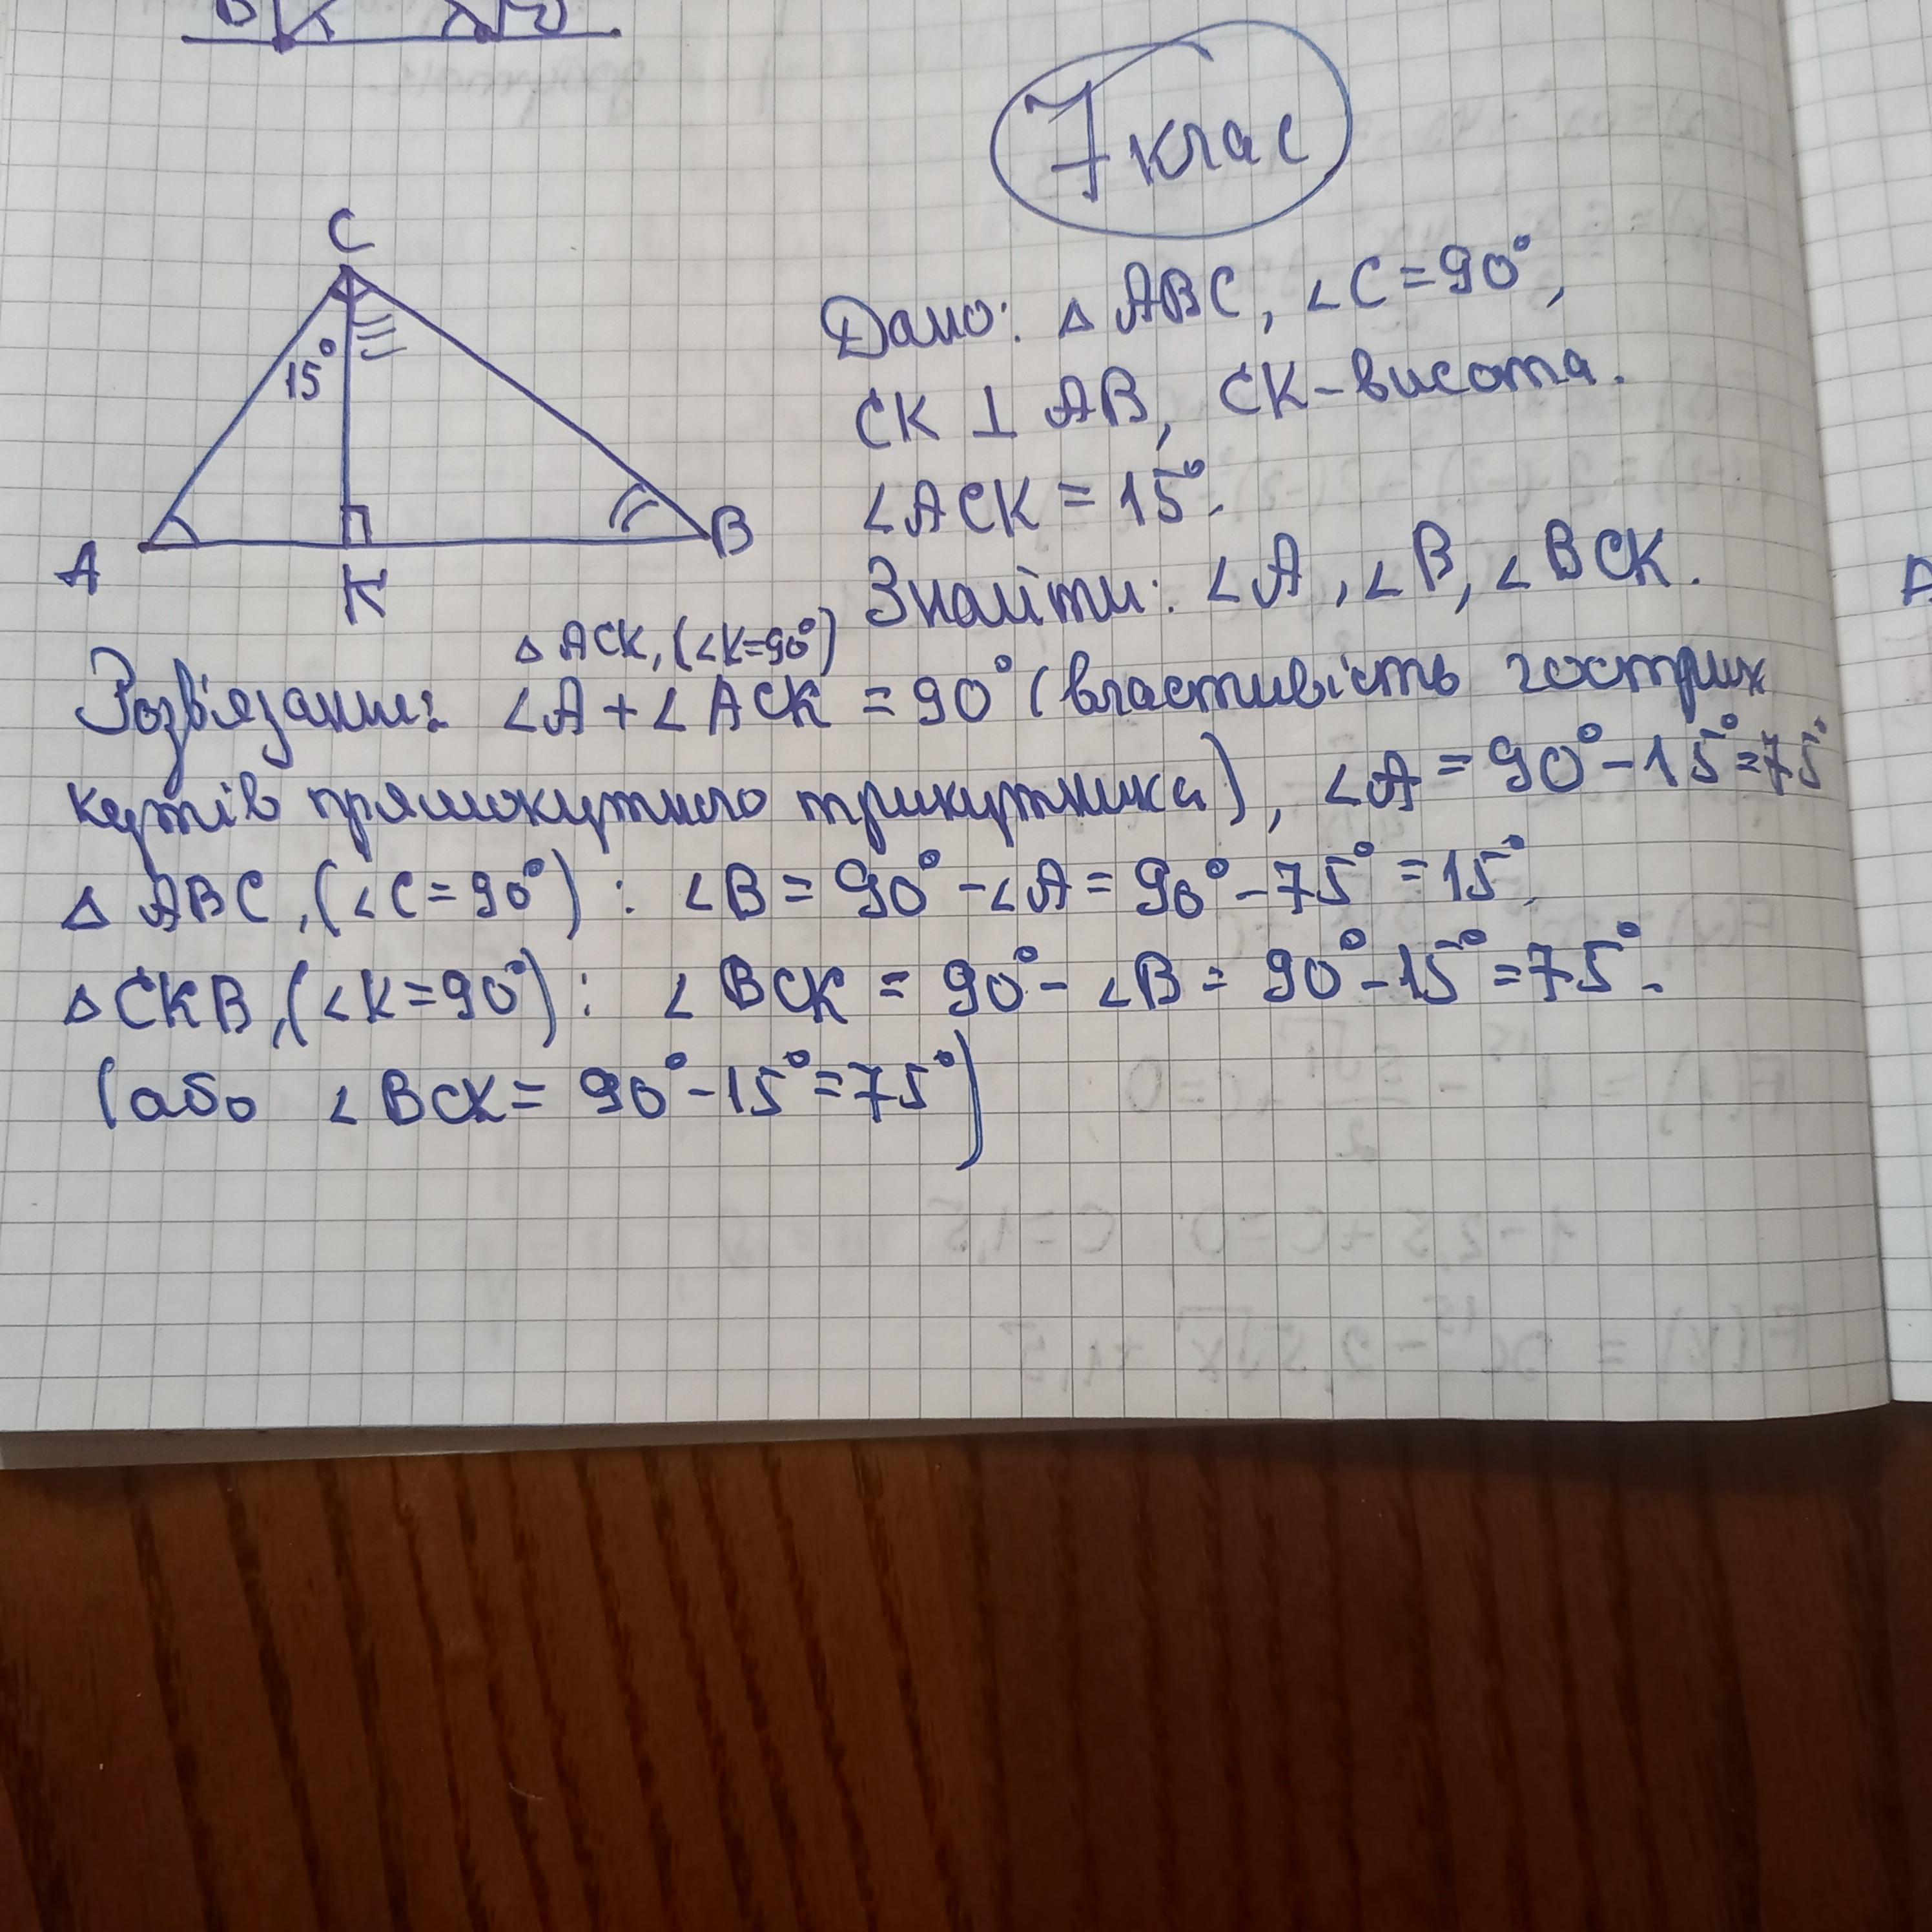 7 клас
C
15°
A
K
B
Дано: △ ABC, ∠C=90°,
CK ⊥ AB, CK-висота.
∠ACK = 15°.
Знайти: ∠A, ∠B, ∠BCK.
△ ACK, (∠K=90°)
Розв'язання: ∠A+∠ACK = 90° (властивість гострих
кутів прямокутного трикутника), ∠A = 90°-15°=75°
△ ABC, (∠C=90°): ∠B = 90°-∠A = 90°-75° = 15°.
△ CKB, (∠K=90°): ∠BCK = 90°-∠B = 90°-15°=75°.
(або ∠BCK = 90°-15°=75°)